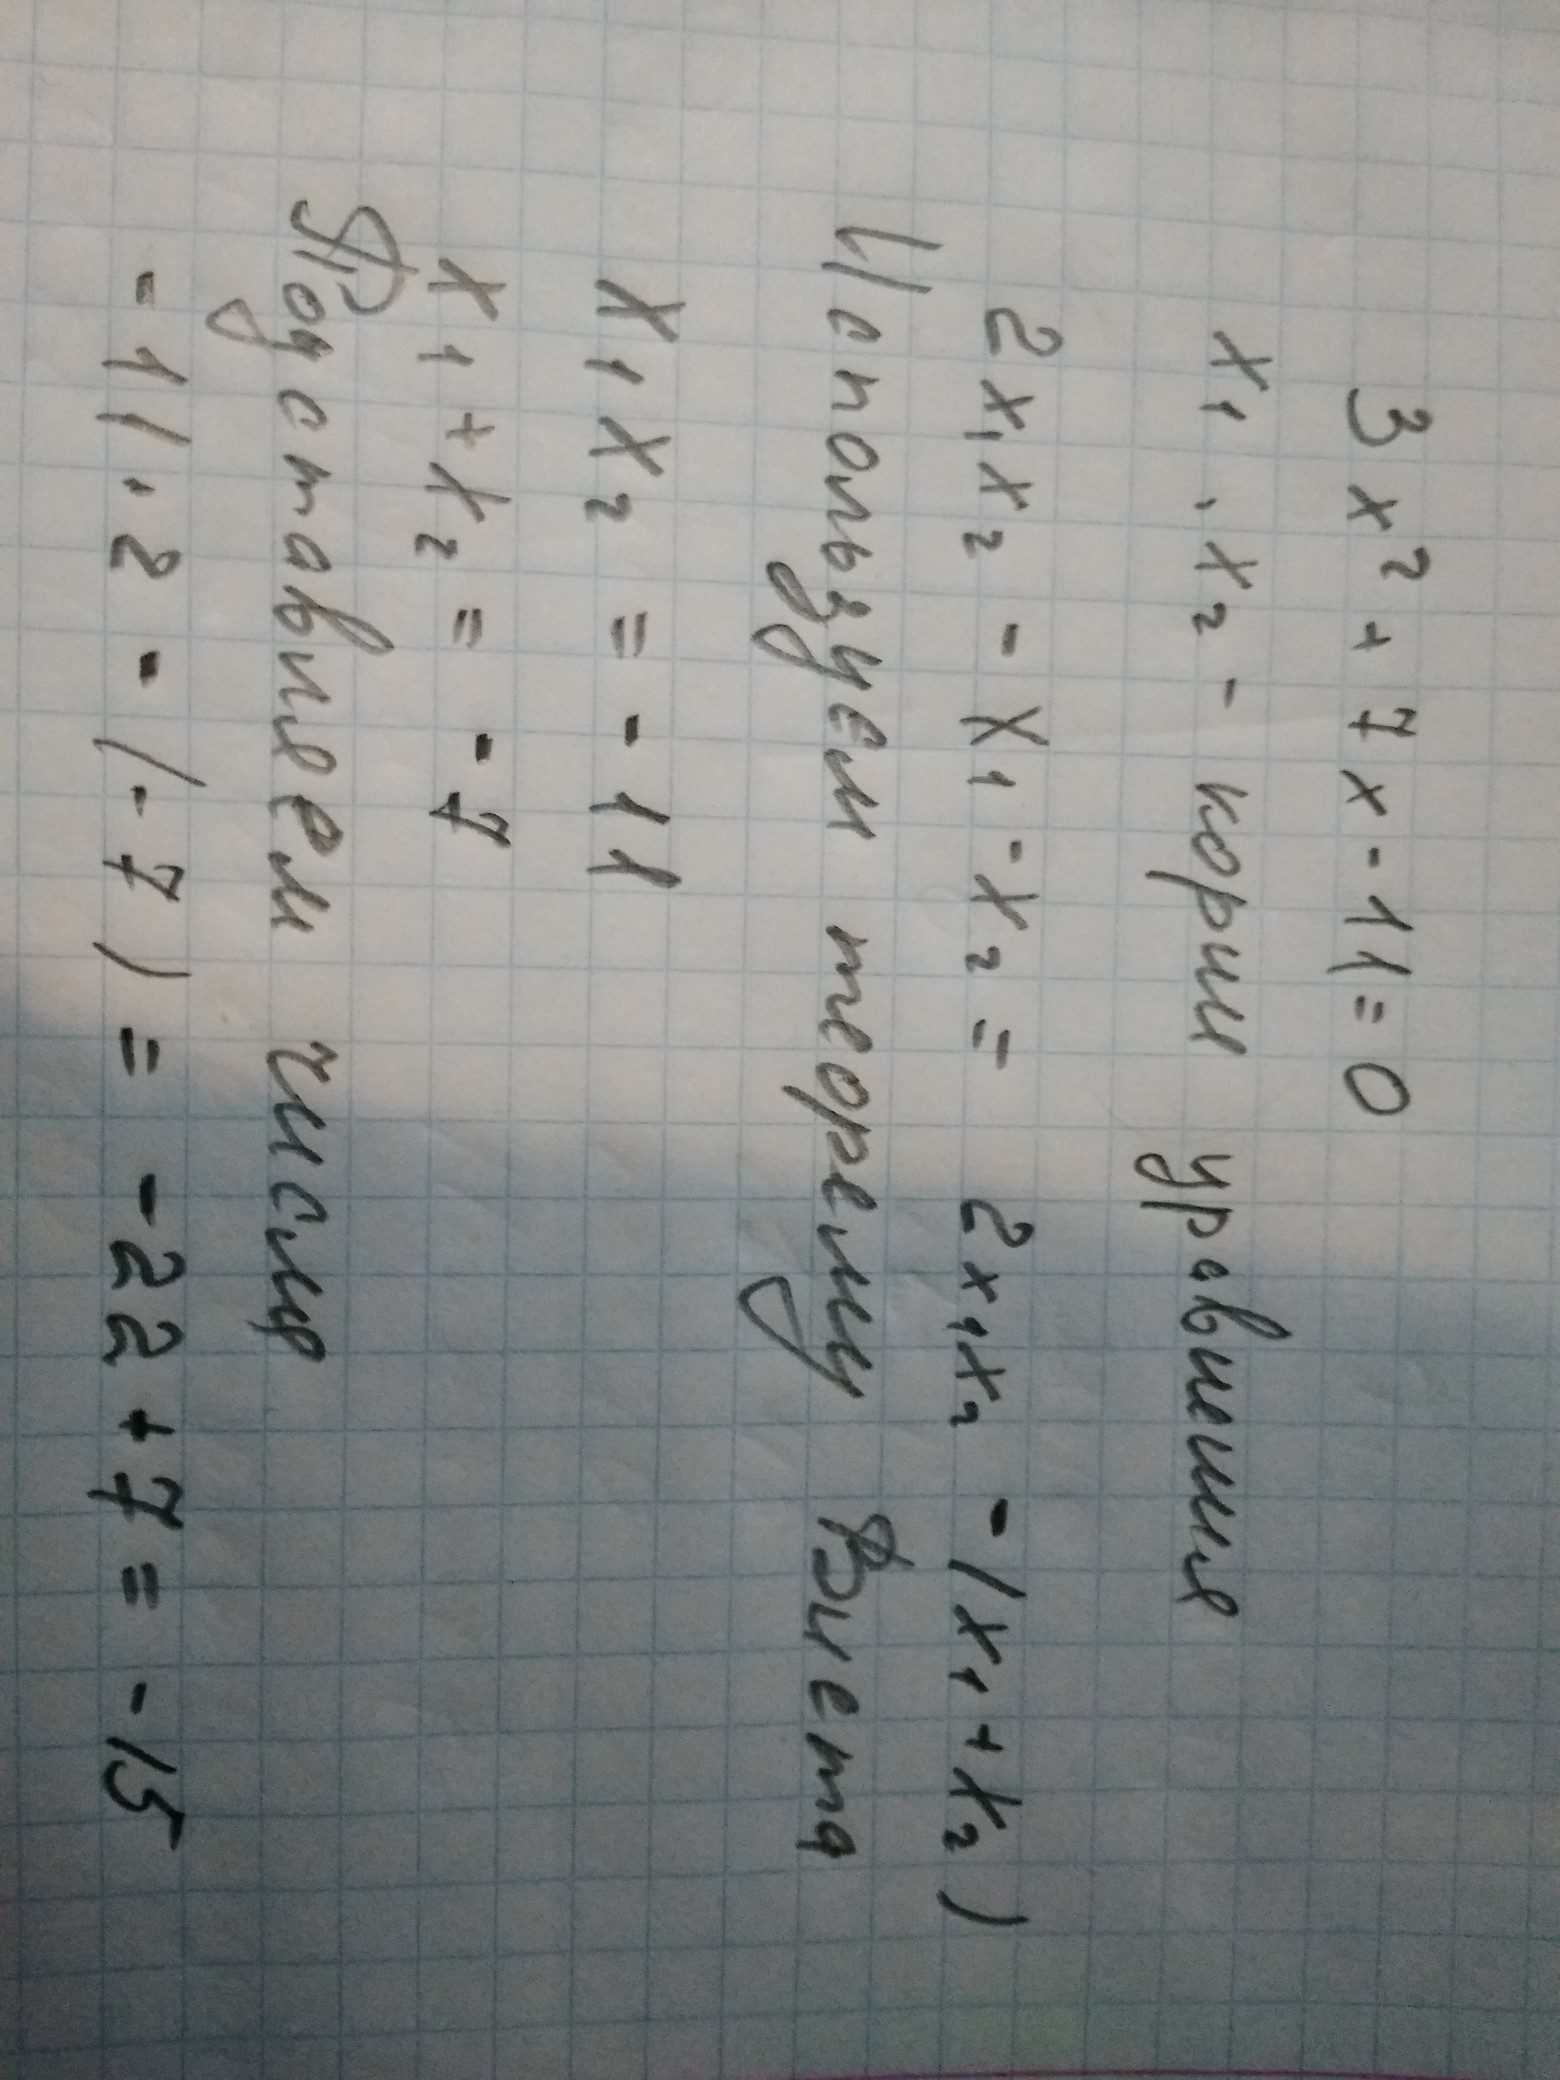 3x² + 7x - 11 = 0
x₁, x₂ - корни уравнения
2x₁x₂ - x₁ - x₂ = 2x₁x₂ - (x₁ + x₂)
Используем теорему Виета
x₁x₂ = - 11
x₁ + x₂ = - 7
Подставляем числа
- 11 · 2 - (-7) = - 22 + 7 = - 15